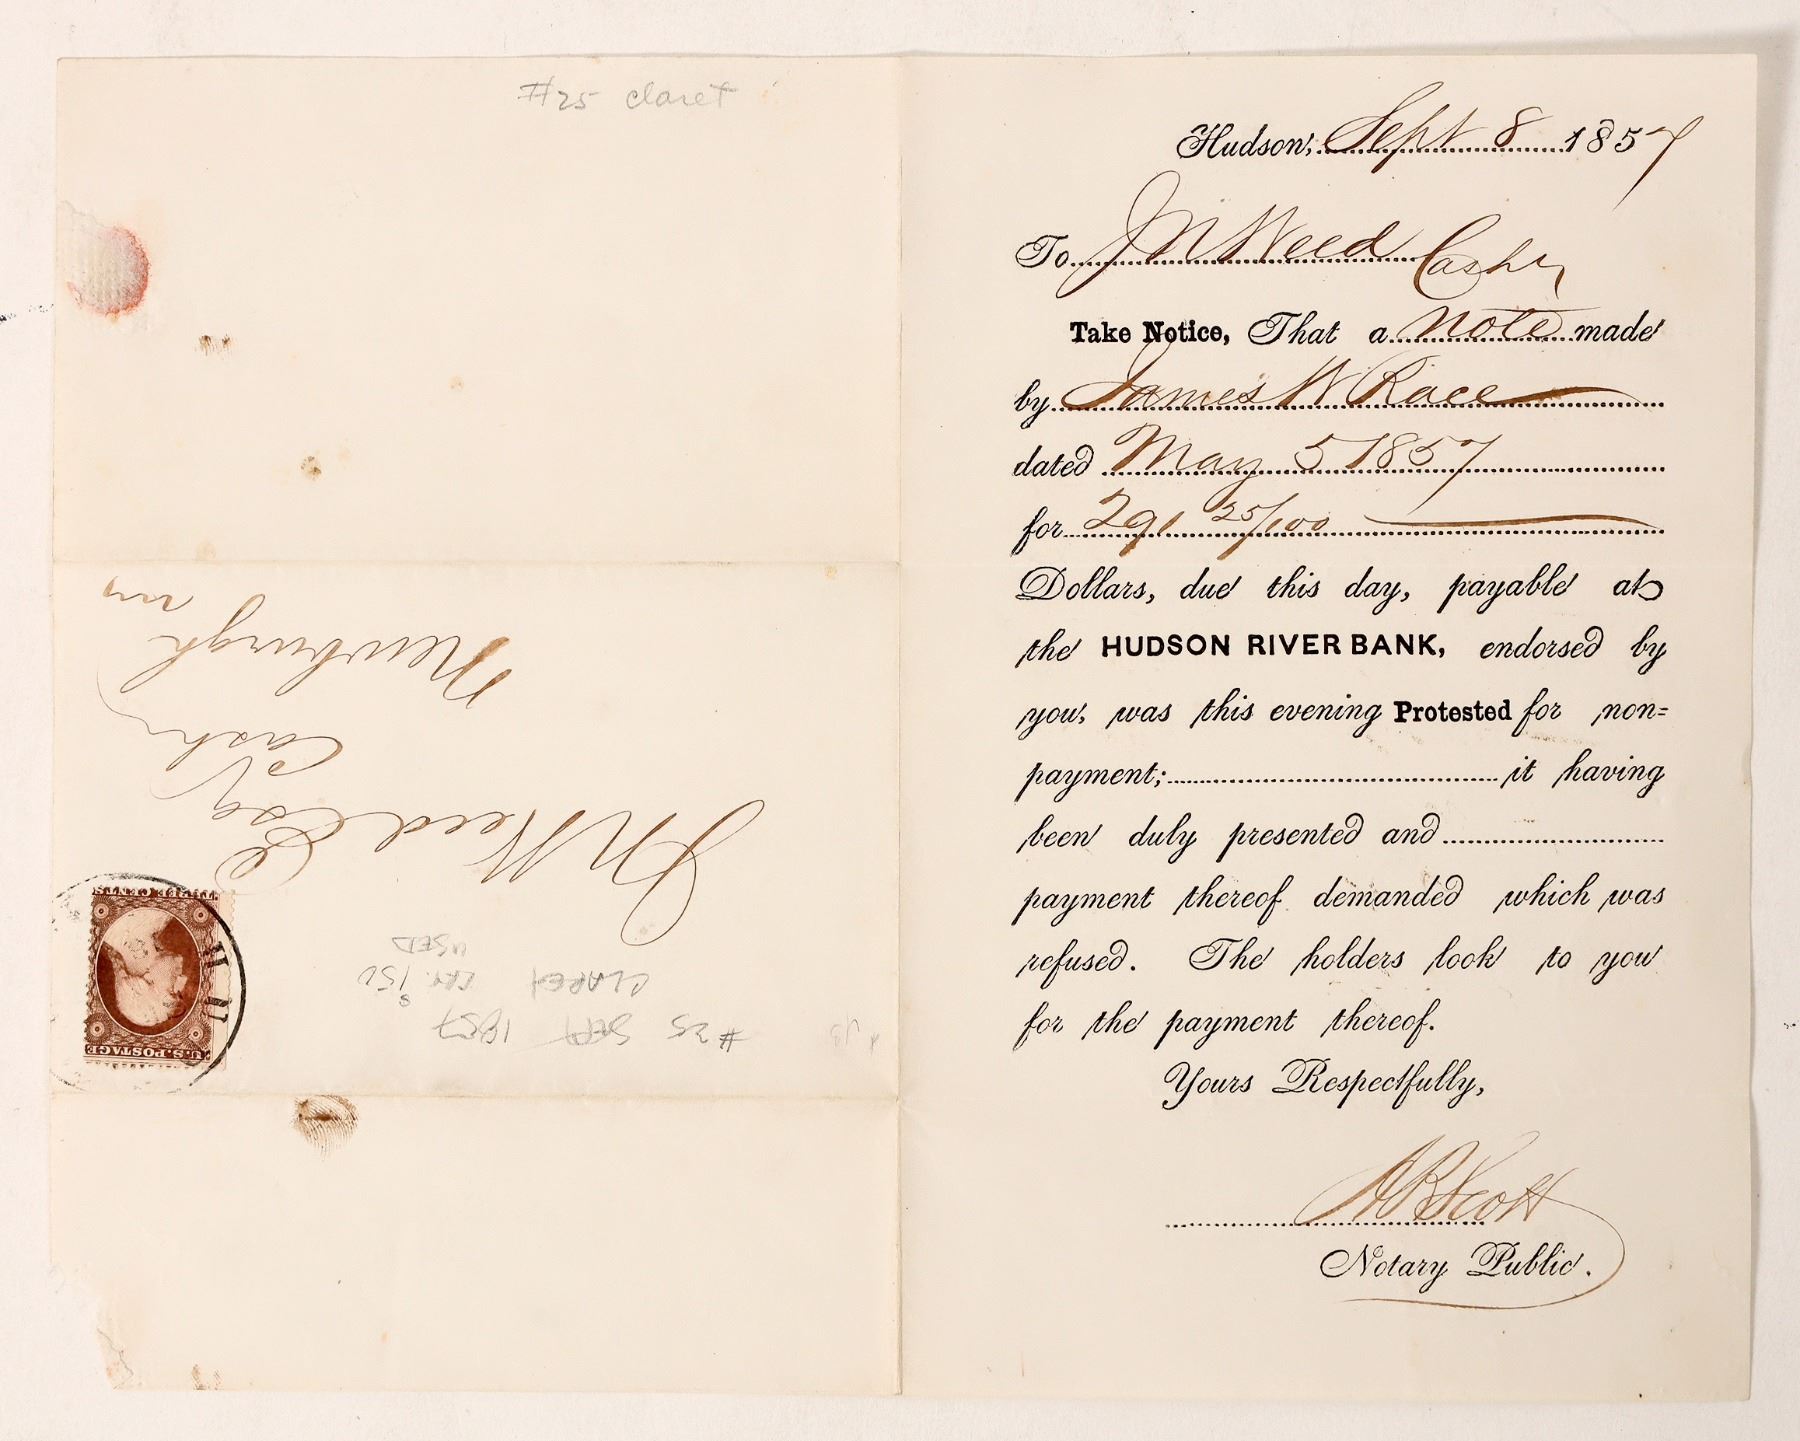 #25 claret
J N Weed Esqr
Cashr
Newburgh
NY
#25 SEPT 1857
CLARET
USED
U.S. POSTAGE
THREE CENTS
Hudson, Sept 8 1857
To J N Weed Cashr
Take Notice, That a Note made
by James W Race
dated May 5 1857
for 291 25/100
Dollars, due this day, payable at
the HUDSON RIVER BANK, endorsed by
you, was this evening Protested for non=
payment; it having
been duly presented and
payment thereof demanded which was
refused. The holders look to you
for the payment thereof.
Yours Respectfully,
A B Scott
Notary Public.